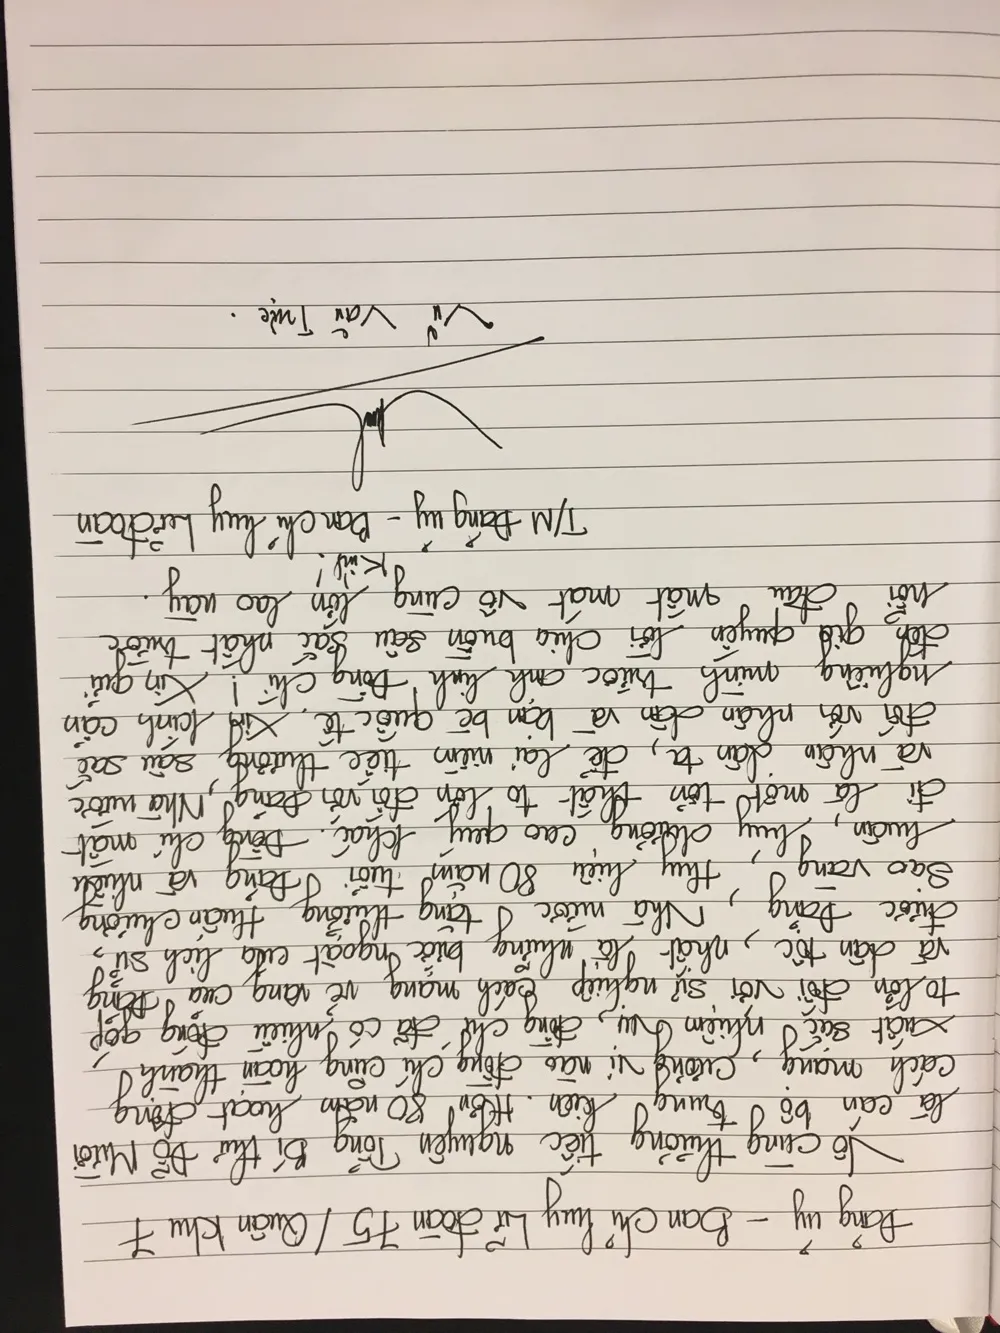 Đảng ủy - Ban chỉ huy Lữ đoàn 75 / Quân khu 7
Vô cùng thương tiếc nguyên Tổng Bí thư Đỗ Mười
là cán bộ trung kiên. Hơn 80 năm hoạt động
cách mạng, cương vị nào đồng chí cũng hoàn thành
xuất sắc nhiệm vụ, đồng chí đã có nhiều đóng góp
to lớn đối với sự nghiệp cách mạng vẻ vang của Đảng
và dân tộc, nhất là những bước ngoặt của lịch sử,
được Đảng, Nhà nước tặng thưởng Huân chương
Sao vàng, Huy hiệu 80 năm tuổi Đảng và nhiều
huân, huy chương cao quý khác. Đồng chí mất
đi là một tổn thất to lớn đối với Đảng, Nhà nước
và nhân dân ta, để lại niềm tiếc thương sâu sắc
đối với nhân dân và bạn bè quốc tế. Xin kính cẩn
nghiêng mình trước anh linh Đồng chí! Xin gửi
đến gia quyến lời chia buồn sâu sắc nhất trước
nỗi đau mất mát vô cùng lớn lao này.
Kính!
T/M Đảng ủy - Ban chỉ huy Lữ đoàn
Vũ Văn Trực.